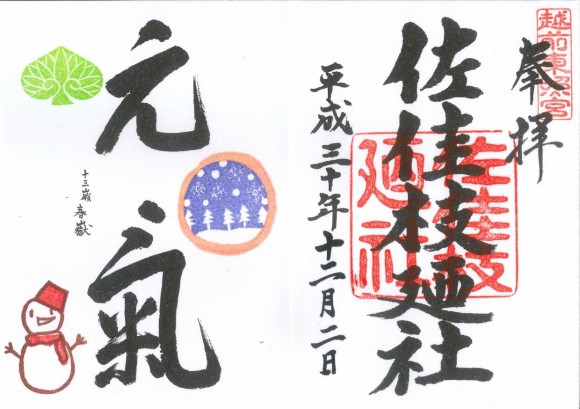 越前東照宮
奉拝
佐佳枝廼社
佐佳枝
廼社
平成三十年十二月二日
元氣
十三歳 春嶽